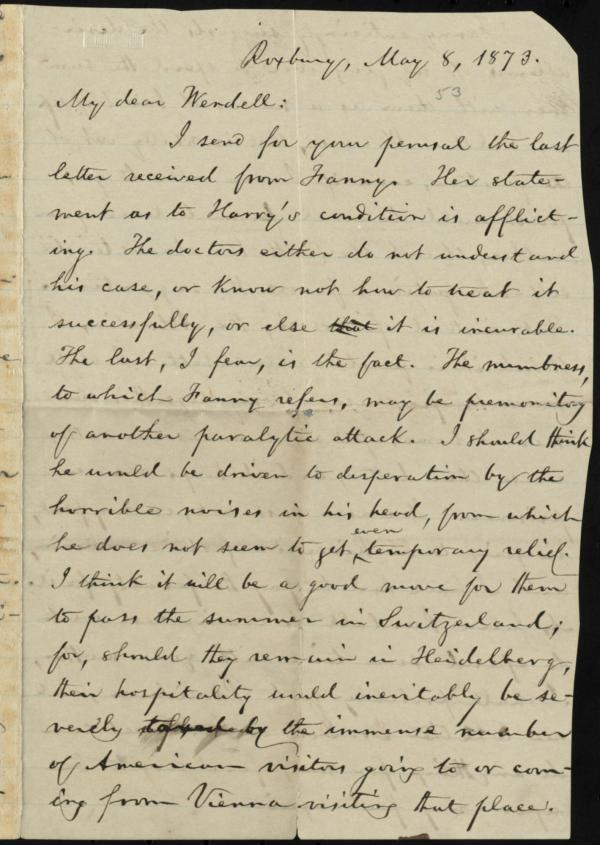 Roxbury, May 8, 1873.
53
My dear Wendell:
I send for your perusal the last
letter received from Fanny. Her state-
ment as to Harry's condition is afflict-
ing. The doctors either do not understand
his case, or know not how to treat it
successfully, or else that it is incurable.
The last, I fear, is the fact. The numbness,
to which Fanny refers, may be premonitory
of another paralytic attack. I should think
he would be driven to desperation by the
horrible noises in his head, from which
even
he does not seem to get temporary relief.
I think it will be a good move for them
to pass the summer in Switzerland;
for, should they remain in Heidelberg,
their hospitality would inevitably be se-
verely by the immense number
of American visitors going to or com-
ing from Vienna visiting that place.